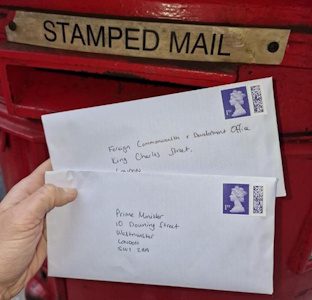 STAMPED MAIL
Foreign Commonwealth + Development Office
King Charles Street,
London
Prime Minister
10 Downing Street
Westminster
London
SW1 2AA